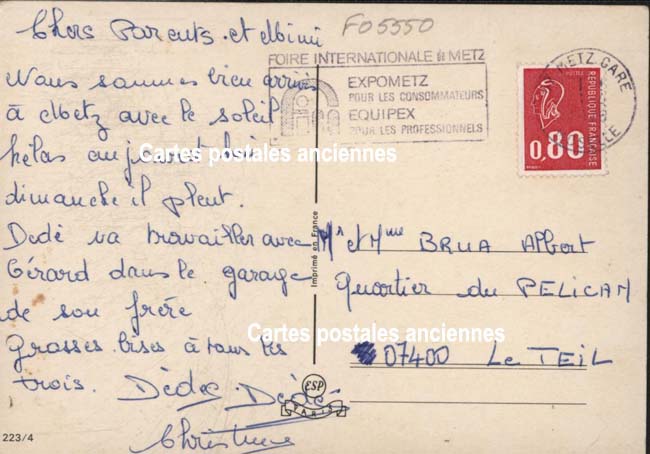 Chers Parents et Mimi
Nous sommes bien arrivés
à Metz avec le soleil
helas aujourd'hui
dimanche il pleut.
Dédé va travailler avec
Gérard dans le garage
de son frère
Grosses bises à tous les
trois. Dédée. Dédé
Christine
223/4
F05550
FOIRE INTERNATIONALE de METZ
EXPOMETZ
POUR LES CONSOMMATEURS
EQUIPEX
POUR LES PROFESSIONNELS
METZ GARE
POSTES
RÉPUBLIQUE FRANÇAISE
0,80
Imprimé en France
Mr et Mme BRUA Albert
Quartier du PELICAN
07400 Le TEIL
ESP
PARIS
Cartes postales anciennes
Cartes postales anciennes